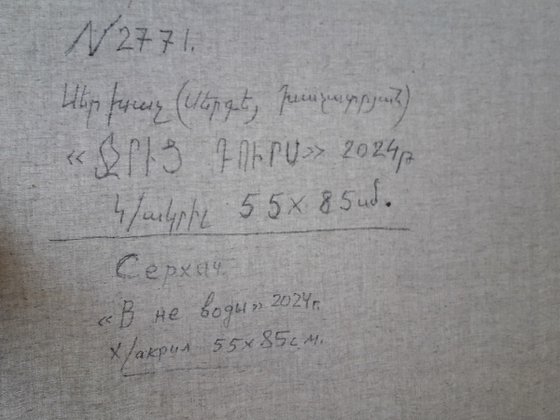 N 2771.
Սերխաչ (Սերգեյ Խաչատրյան)
« ՋՐԻՑ ԴՈՒՐՍ» 2024թ
կ/ակրիլ 55x85սմ.
Серхач
«В не воды» 2024г.
х/акрил 55x85см.